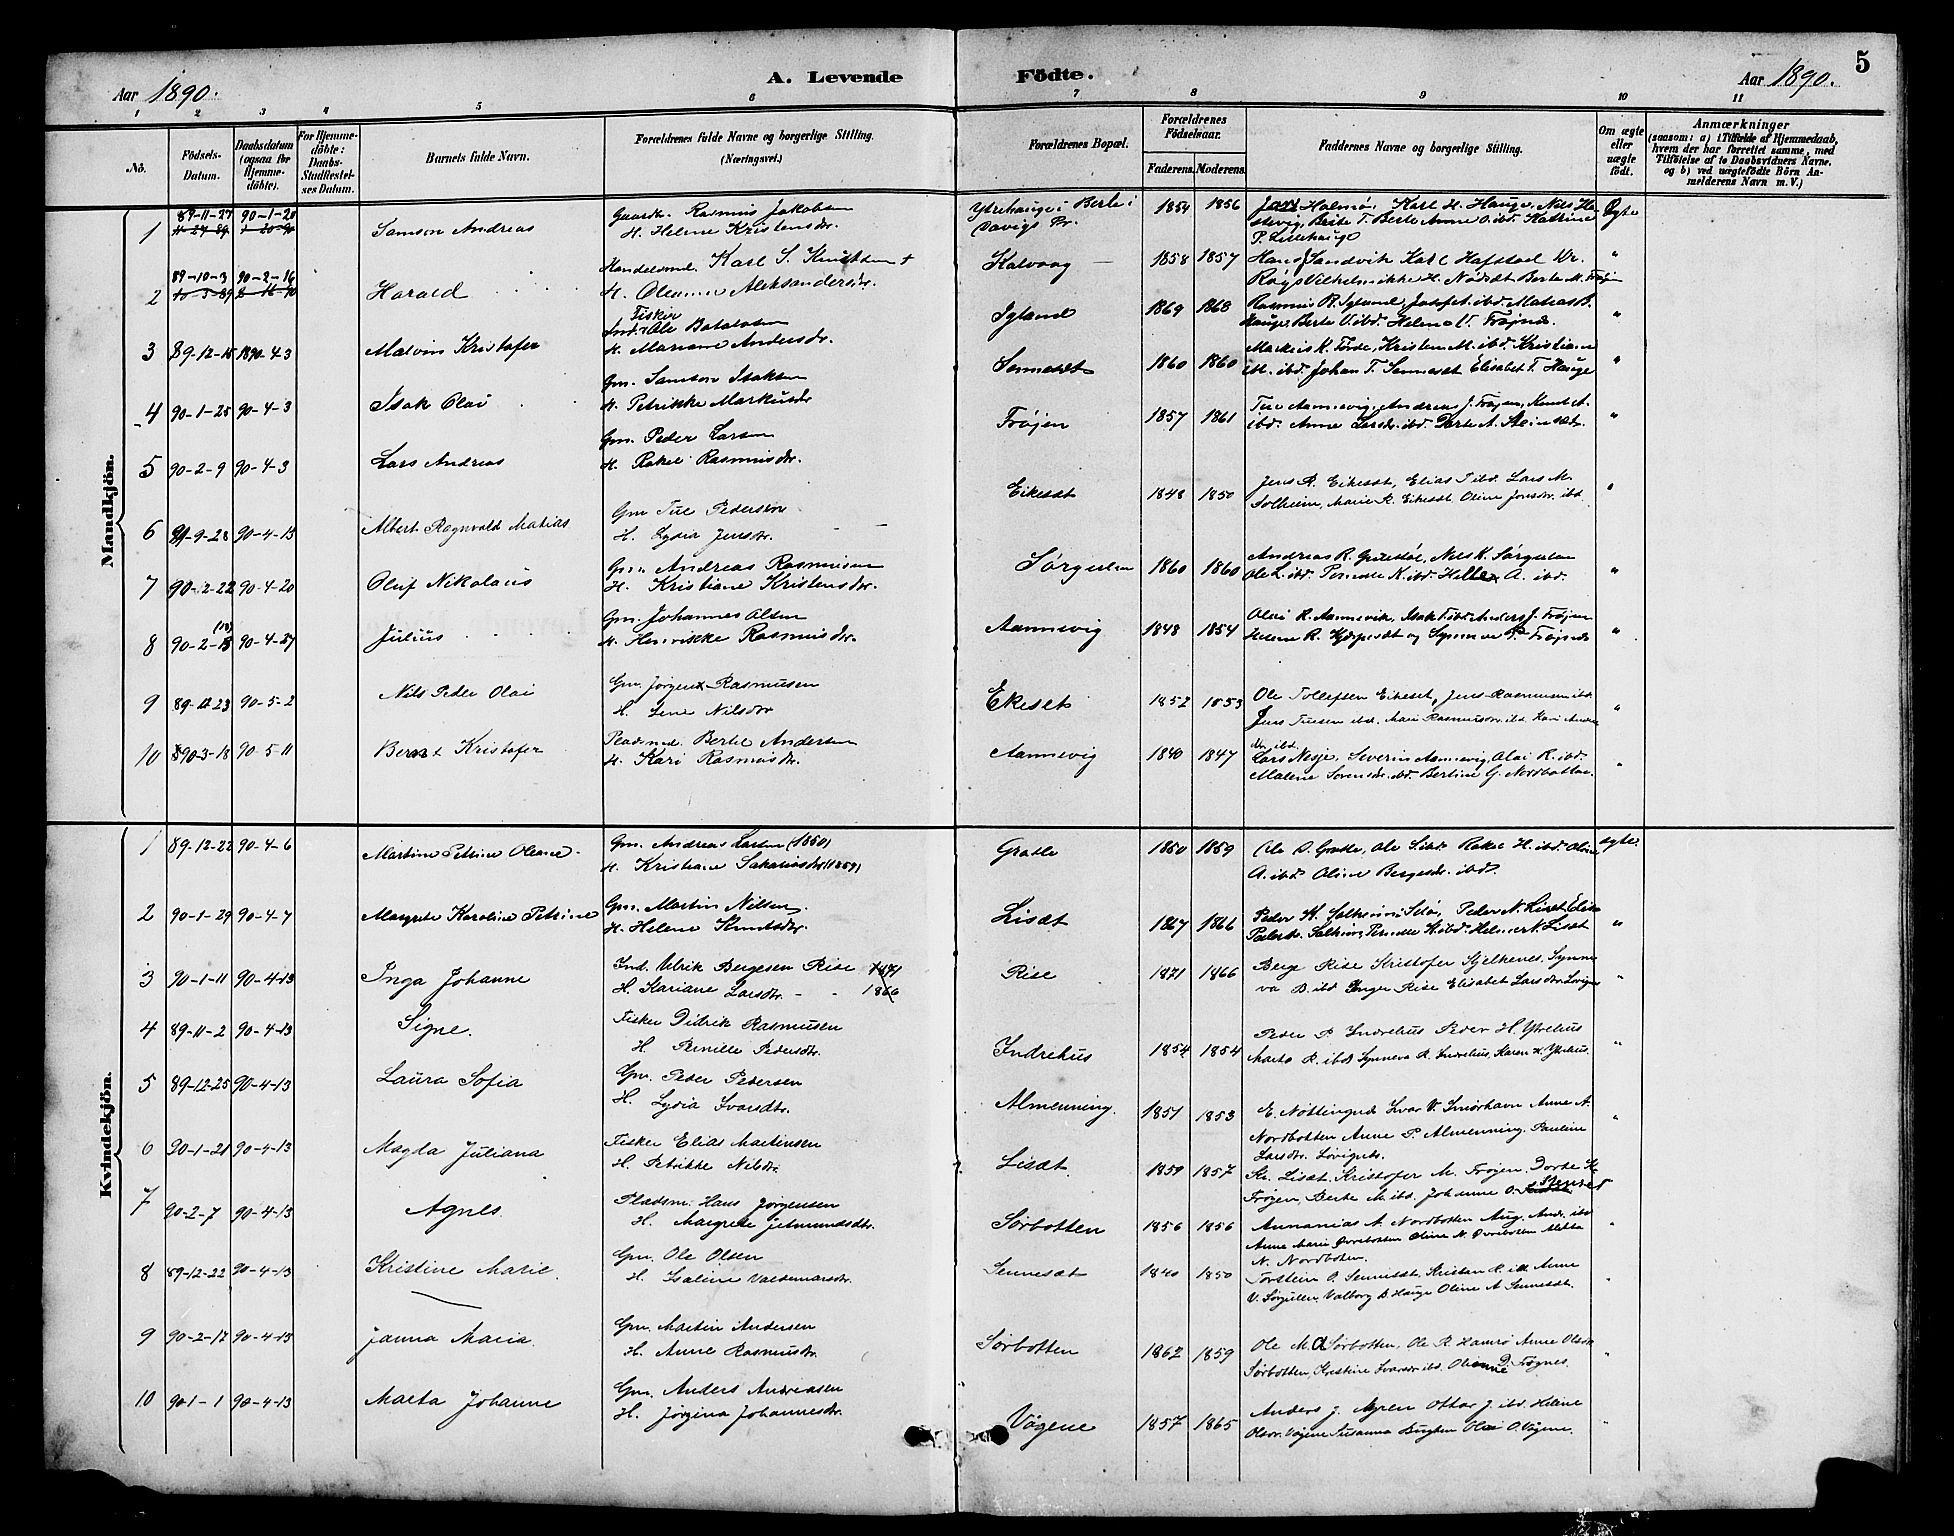 A. Levende Födte.
5
Aar 1890.
Aar 1890.
1 2 3 4 5 6 7 8 9 10 11
No.
Födsels-Datum.
Daabsdatum (ogsaa for Hjemme-döbte).
For Hjemme-döbte: Daabs-Stadfæstelses Datum.
Barnets fulde Navn.
Forældrenes fulde Navne og borgerlige Stilling. (Næringsvei.)
Forældrenes Bopæl.
Forældrenes Födselsaar.
Faderens. Moderens.
Faddernes Navne og borgerlige Stilling.
Om ægte eller uægte födt.
Anmærkninger
(saasom: a) i Tilfælde af Hjemmedaab,
hvem der har forrettet samme, med
Tilföielse af to Daabsvidners Navne,
og b) ved uægtefödte Börn An-
melderens Navn m. V.)
Mandkjön.
1 89-11-27 90-1-20 Samson Andreas Gaardbr. Rasmus Jakobsen
H. Helene Kristensdr. Ytrehauge i Berle i Vavigs Pr. 1854 1856 Holmø, Karl H. Hauge, Nils
Berte T. Berle Anne O. ibd. Katrine
P. Lillehauge Ægte
2 89-10-3 90-2-16 Harald Handelsmd. Karl S. Knutsen +
H. Oleanne Aleksandersdr. Kalvaag 1858 1857 Hans Sandvik Karl Hafstad
Berte M. Frøjen "
3 89-12-15 1890-4-3 Malvin Kristofer Fisker Ind. Ole Batalsen
H. Mariane Andersdr. Igland 1869 1868 Rasmus R. Igland, Josefet. ibd. Matias B.
Hauge, Berte V. ibd. Helene V. Frøjnæ. "
4 90-1-25 90-4-3 Isak Olai Gm. Samson Isaksen
H. Petrikke Markusdr. Sennesæt 1860 1860 Markus K. Førde, Kristen M. ibd. Kristiane
M. ibd. Johan T. Sennesæt Elisabet T. Hauge "
5 90-2-9 90-4-3 Lars Andreas Gm. Peder Larsen
H. Rakel Rasmusdr. Frøjen 1857 1861 Tue Aamnevig, Andreas J. Frøjen, Knut A.
ibd. Anne Larsdr. ibd. Dorte A. Steinsæt. "
6 89-9-28 90-4-13 Albert Ragnvald Matias Gm Tue Pedersen
H. Lydia Jensdr. Eikesæt 1848 1850 Jens R. Eikesæt, Elias T. ibd. Lars M.
Solheim, Marie R. Eikesæt Oline Jonsdr. ibd. "
7 90-2-22 90-4-20 Oluf Nikolaus Gm. Andreas Rasmusen
H. Kristiane Kristensdr. Sørgulen 1860 1860 Andreas R. Nils K. Sørgulen
Ole L. ibd. Pernille K. ibd. Helle A. ibd. "
8 90-2-13 90-4-27 Julius Gm. Johannes Olsen
H. Henrikke Rasmusdr. Aamnevig 1848 1854 Olai R. Aamnevik, Isak T. ibd. Anders J. Frøjen
Helene R. og Synneve P. Frøjnæs "
9 89-11-23 90-5-2 Nils Peder Olai Gm. Jørgen Rasmusen
H. Lene Nilsdr. Ekeset 1852 1853 Ole Tollefsen Eikeset, Jens Rasmusen ibd.
Jens Tuesen ibd. Mari Rasmusdr. ibd. Kari Anders
dr. ibd. "
10 90-3-18 90-5-11 Bernt Kristofer Pladsmd. Bertel Andersen
H. Kari Rasmusdr. Aamnevig 1840 1847 Lars Nesje, Severin Aamnevig, Olai R. ibd.
Malene Sørensdr. ibd. Bertine G. Nordbotten. "
Kvindekjön.
1 89-12-22 90-4-6 Martine Petrine Oleane Gm. Andreas Larsen (1850)
H. Kristiane Sakariasdr. (1859) Grotle 1850 1859 Ole O. Grotle, Ole L. ibd. Rakel H. ibd. Oline
A. ibd. Oline Bergesdr. ibd. ægte
2 90-1-29 90-4-7 Margrete Karoline Petrine Gm. Martin Nilsen
H. Helene Knutsdr. Lisæt 1867 1866 Peder H. Solheim, Peder N. Liset Elise
Pedersdr. Solheim, Pernille K. ibd. Helene N. Lisæt "
3 90-1-11 90-4-13 Inga Johanne Ind. Ulrik Bergesen Rise 1871
H. Kariane Larsdtr. 1866 Rise 1871 1866 Berge Rise Kristofer Hjelkenes, Synne
va B. ibd. Inger Rise Elisabet Larsdtr. "
4 89-11-2 90-4-13 Signe. Fisker Didrik Rasmusen
H. Pernille Pedersdtr. Indrehus 1854 1854 Peder P. Indrehus Peder H. Ytrehus
Marta R. ibd. Synneva R. Indrehus, Karen H. Ytrehus. "
5 89-12-25 90-4-13 Laura Sofia Gm. Peder Pedersen
H. Lydia Ivarsdtr. Almenning. 1851 1853 E. Nøttingnes Ivar V. Smørhavn Anne A.
Nordbotten Anne P. Almenning. Pauline
Larsdtr. "
6 90-1-21 90-4-13 Magda Juliana Fisker Elias Martinsen
H. Petrikke Nilsdtr. Lisæt. 1859 1857 Lisæt Kristofer M. Frøjen Dorte
Frøjen, Berte M. ibd. Johanne O. "
7 90-2-7 90-4-13 Agnes. Pladsm. Hans Jørgensen
H. Margrete Jetmundsdtr. Sørbotten 1856 1856 Annanias A. Nordbotten Aug. Andr. ibd
Anne Marie Øvrebotten Oline N. Øvrebotten
N. Nordbotten. "
8 89-12-22 90-4-13 Kristine Marie. Gm. Ole Olsen
H. Isaline Valdemarsdtr. Sennesæt 1840 1850 Torstein O. Sennesæt, Kristen R. ibd. Anne
V. Sørgulen. Valborg D. Hauge Oline A. Sennesæt. "
9 90-2-17 90-4-13 Janna Maria. Gm. Martin Andersen
H. Anne Rasmusdtr. Sørbotten 1862 1859 Ole M. Sørbotten, Ole R. Hamrø Anne Olsdtr.
Sørbotten, Kristine Ivarsdr. ibd. Oleanne D. Frøgnes. "
10 90-1-1 90-4-13 Marta Johanne Gm. Anders Andreasen
H. Jørgina Johannesdtr. Vågene 1857 1865 Anders J. Myren Ottar J. ibd. Heline
Olsdr. Vågene Susanna Olai O. Vågene. "